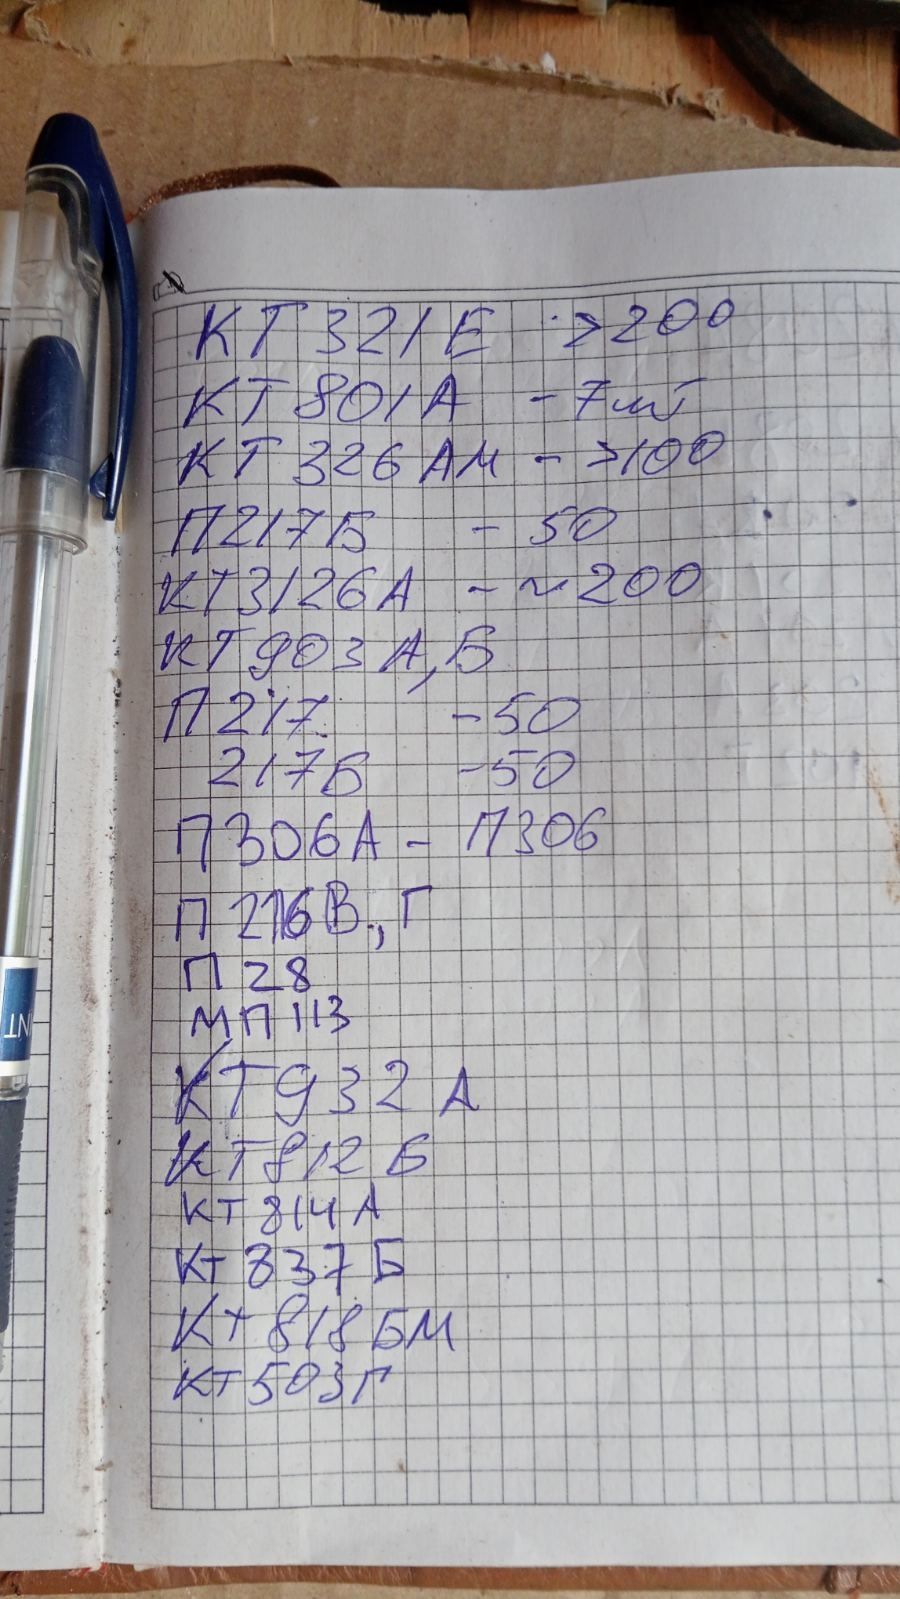 КТ 321 Е >200
КТ 801А - 7шт
КТ 326АМ - >100
П217Б - 50
КТ3126А - ~200
КТ903А,Б
П217 -50
217Б -50
П306А - П306
П 216В, Г
П 28
МП 113
КТ932 А
КТ812 Б
КТ 814 А
КТ 837 Б
КТ 818 БМ
КТ 503Г